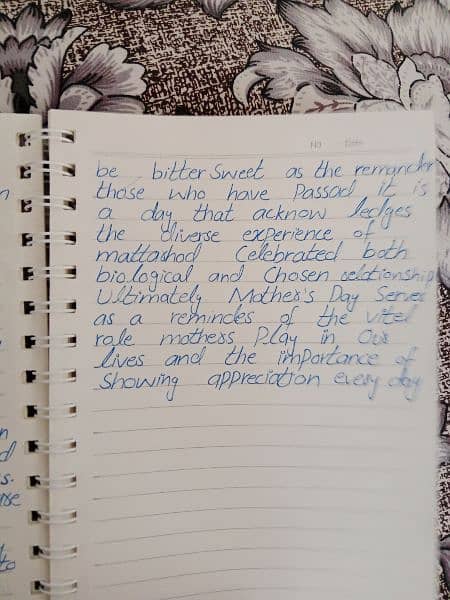 No Date
be bitter sweet as the remander
those who have Passad it is
a day that acknow ledges
the diverse experience of
mattashod Celebrated both
biological and Chosen relationship
Ultimately Mother's Day Serves
as a remindes of the vital
role mothers Play in Our
lives and the importance of
Showing appreciation every day